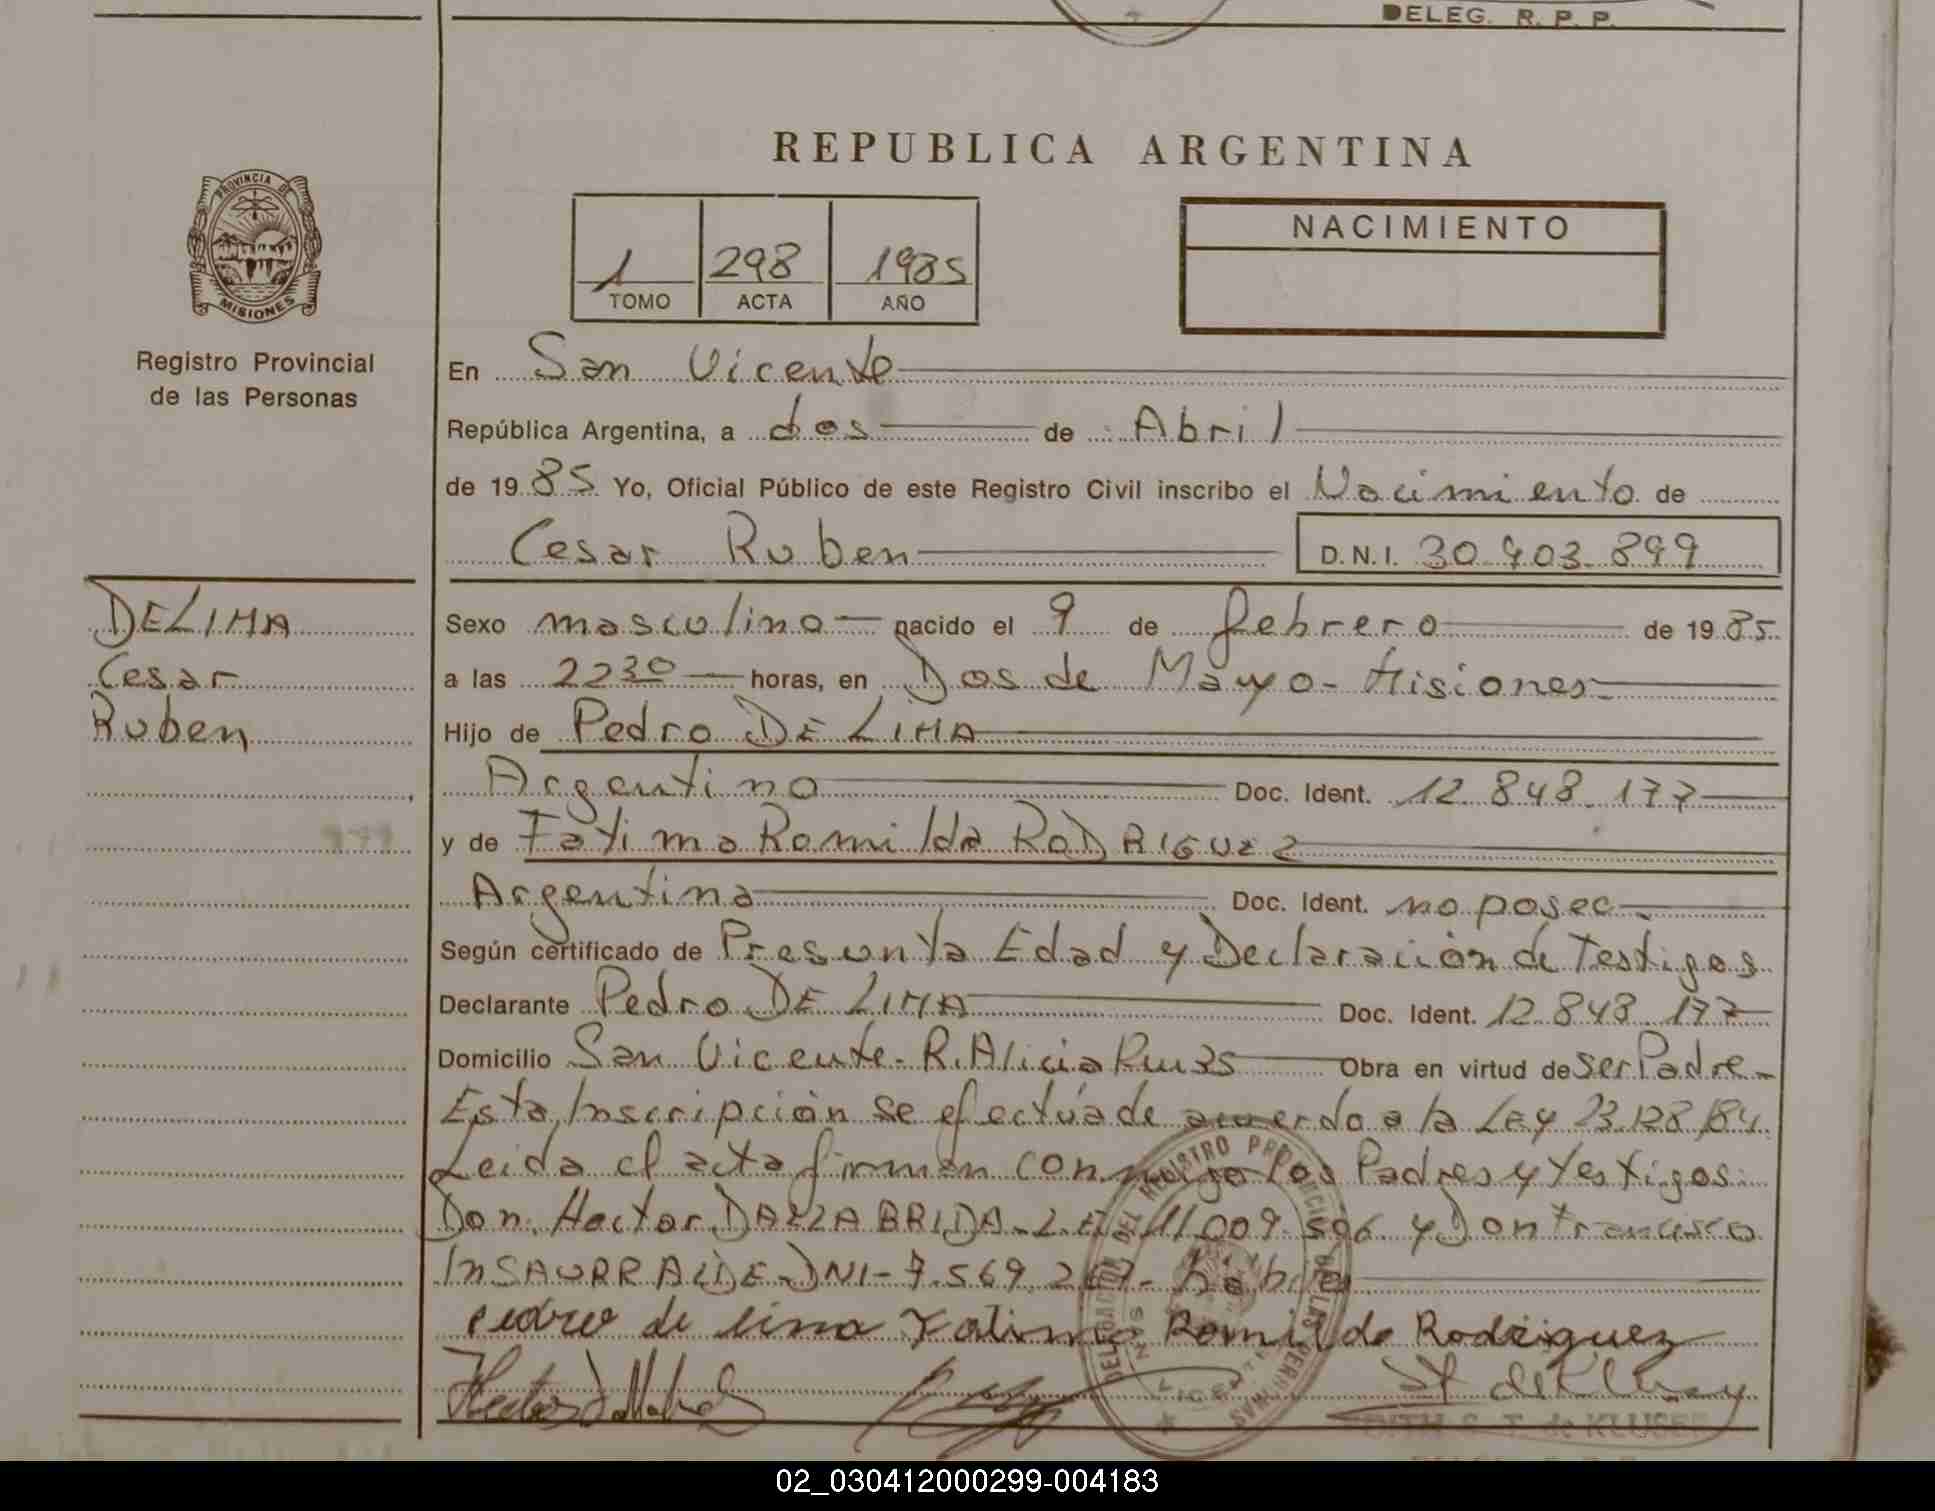 DELEG. R. P. P.
REPUBLICA ARGENTINA
PROVINCIA DE
MISIONES
Registro Provincial
de las Personas
1 298 1985
TOMO ACTA AÑO
NACIMIENTO
En San Vicente
República Argentina, a dos de Abril
de 1985 Yo, Oficial Público de este Registro Civil inscribo el Nacimiento de
Cesar Ruben D.N.I. 30.903.899
DE LIMA
Cesar
Ruben
Sexo masculino nacido el 9 de febrero de 1985
a las 22 30 horas, en Dos de Mayo - Misiones
Hijo de Pedro DE LIMA
Argentino Doc. Ident. 12.848.177
y de Fatima Romilda RODRIGUEZ
Argentina Doc. Ident. no posee
Según certificado de Presunta Edad y Declaración de Testigos
Declarante Pedro DE LIMA Doc. Ident. 12.848.177
Domicilio San Vicente - R. Alicia Obra en virtud de ser Padre
Esta Inscripción se efectúa de acuerdo a la LEY 23.128/84
Leida el acta firman conmigo los Padres y testigos
Don Hector DALLABRIDA - L.E. 11.009.596 y Don Francisco
INSAURRALDE - DNI - 7.569.267 - hábiles
pedro de lima Fatima Romilda Rodriguez
DELEGACION DEL REGISTRO PROVINCIAL DE LAS PERSONAS
de KLUSEN
02_030412000299-004183